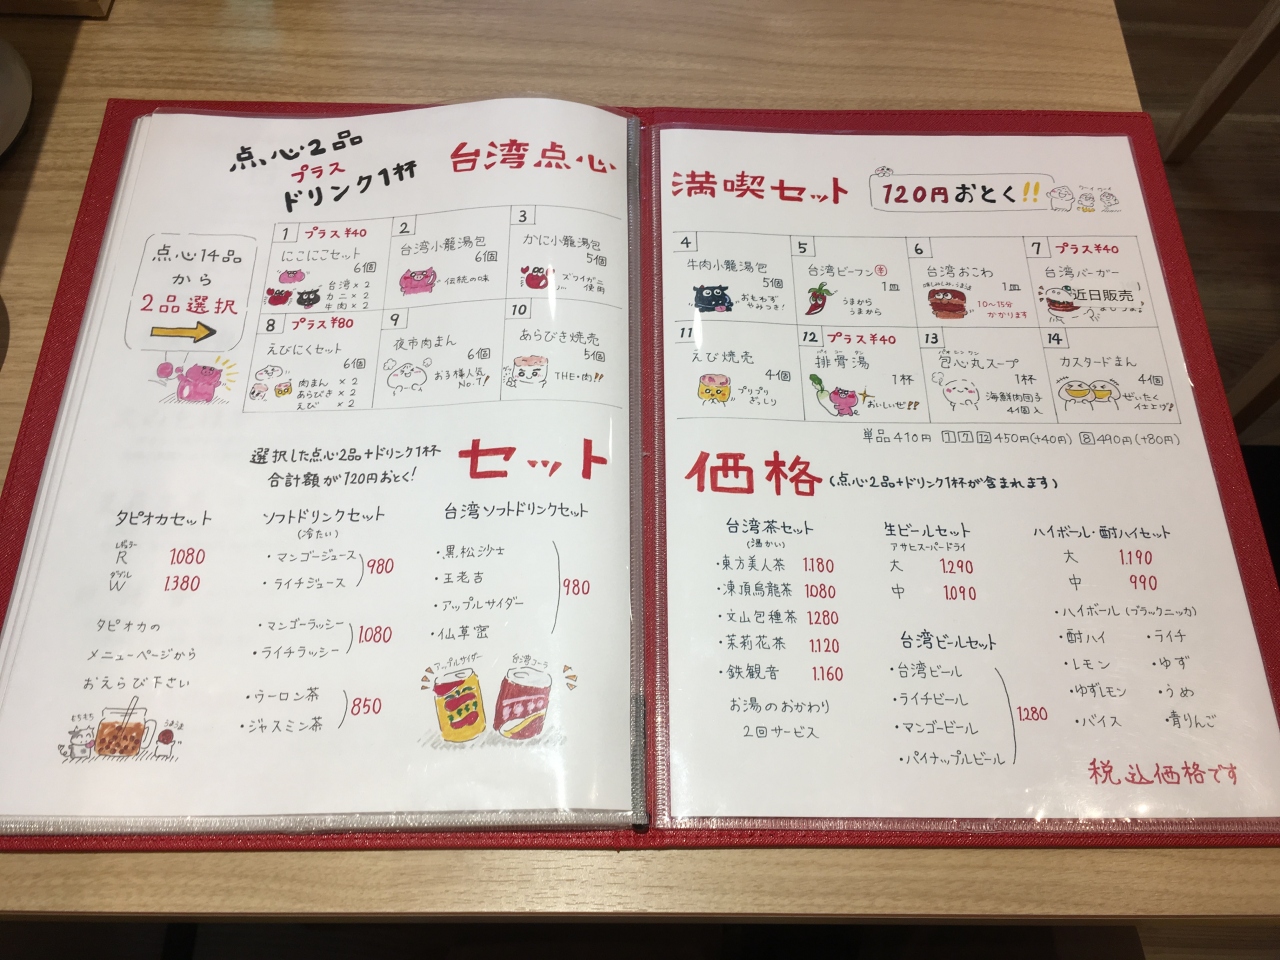 点心2品
プラス
ドリンク1杯
台湾点心
満喫セット
120円おとく!!
点心14品
から
2品選択
1 プラス¥40
にこにこセット
6個
台湾×2
カニ×2
牛肉×2
2
台湾小籠湯包
6個
伝統の味
3
かに小籠湯包
5個
ズワイガニ
使用
4
牛肉小籠湯包
5個
おもわず
やみつき!
5
台湾ビーフン
1皿
うまから
うまから
6
台湾おこわ
1皿
10〜15分
かかります
7 プラス¥40
台湾バーガー
近日販売
8 プラス¥80
えびにくセット
6個
肉まん ×2
あらびき×2
えび ×2
9
夜市肉まん
6個
お子様人気
No.1!
10
あらびき焼売
5個
THE・肉!!
11
えび焼売
4個
プリプリ
ぎっしり
12 プラス¥40
排骨湯
1杯
おいしいぜ!!
13
包心丸スープ
1杯
海鮮肉団子
4個入
14
カスタードまん
4個
ぜいたく
仕上げ!
単品410円 1 7 12 450円(+40円) 8 490円(+80円)
選択した点心2品+ドリンク1杯
合計額が120円おとく!
セット
価格(点心2品+ドリンク1杯が含まれます)
タピオカセット
レギュラー
R 1.080
ダブル
W 1.380
タピオカの
メニューページから
おえらび下さい
もちもち
うまうま
ソフトドリンクセット
(冷たい)
・マンゴージュース
・ライチジュース
980
・マンゴーラッシー
・ライチラッシー
1.080
・ウーロン茶
・ジャスミン茶
850
台湾ソフトドリンクセット
・黒松沙士
・王老吉
・アップルサイダー
・仙草蜜
980
アップルサイダー
台湾コーラ
台湾茶セット
(温かい)
・東方美人茶 1.180
・凍頂烏龍茶 1.080
・文山包種茶 1.280
・茉莉花茶 1.120
・鉄観音 1.160
お湯のおかわり
2回サービス
生ビールセット
アサヒスーパードライ
大 1.290
中 1.090
台湾ビールセット
・台湾ビール
・ライチビール
・マンゴービール
・パイナップルビール
1.280
ハイボール・酎ハイセット
大 1.190
中 990
・ハイボール(ブラックニッカ)
・酎ハイ ・ライチ
・レモン ・ゆず
・ゆずレモン ・うめ
・バイス ・青りんご
税込価格です